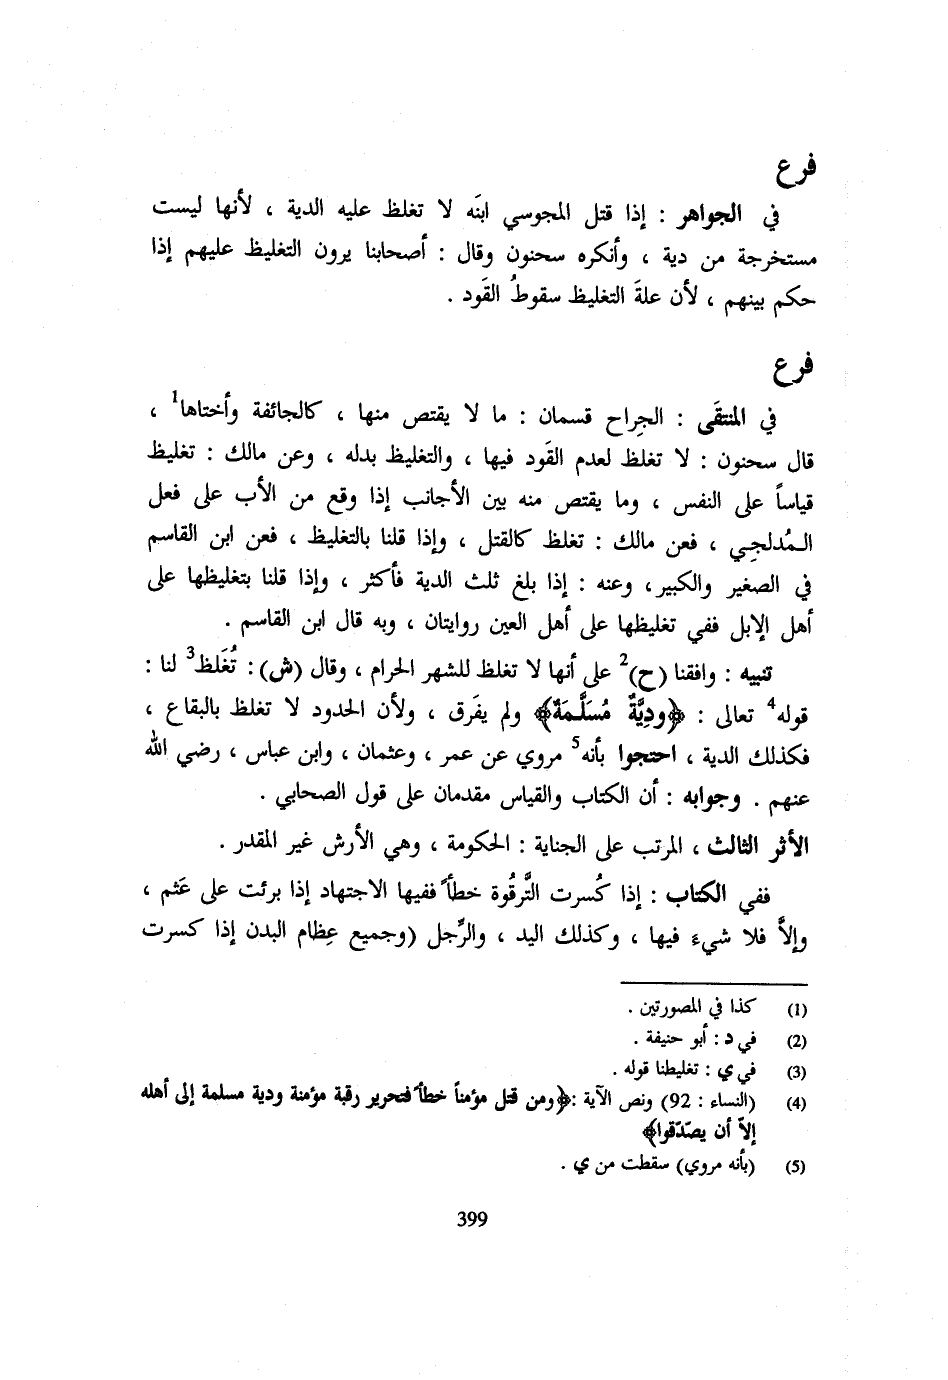 فرع
في الجواهر : إذا قتل المجوسي ابنَه لا تغلظ عليه الدية ، لأنها ليست
مستخرجة من دية ، وأنكره سحنون وقال : أصحابنا يرون التغليظ عليهم إذا
حكم بينهم ، لأن علةَ التغليظ سقوطُ القَود .
فرع
في المنتقَى : الجراح قسمان : ما لا يقتص منها ، كالجائفة وأختاها1 ،
قال سحنون : لا تغلظ لعدم القَود فيها ، والتغليظ بدله ، وعن مالك : تغليظ
قياساً على النفس ، وما يقتص منه بين الأجانب إذا وقع من الأب على فعل
المُدلجِي ، فعن مالك : تغلظ كالقتل ، وإذا قلنا بالتغليظ ، فعن ابن القاسم
في الصغير والكبير، وعنه : إذا بلغ ثلث الدية فأكثر ، وإذا قلنا بتغليظها على
أهل الإبل ففي تغليظها على أهل العين روايتان ، وبه قال ابن القاسم .
تنبيه : وافقنا (ح)2 على أنها لا تغلظ للشهر الحرام ، وقال (ش) : تُغَلظ3 لنا :
قوله4 تعالى : ﴿ودِيَّةٌ مُسَلَّمَةٌ﴾ ولم يفَرق ، ولأن الحدود لا تغلظ بالبقاع ،
فكذلك الدية ، احتجوا بأنه5 مروي عن عمر ، وعثمان ، وابن عباس ، رضي الله
عنهم . وجوابه : أن الكتاب والقياس مقدمان على قول الصحابي .
الأثر الثالث ، المرتب على الجناية : الحكومة ، وهي الأرش غير المقدر .
ففي الكتاب : إذا كُسرت التَّرقُوة خطأ ففيها الاجتهاد إذا برئت على عَثم ،
وإلاَّ فلا شيءَ فيها ، وكذلك اليد ، والرِّجل (وجميع عِظام البدن إذا كسرت
(1) كذا في المصورتين .
(2) في د : أبو حنيفة .
(3) في ي : تغليطنا قوله .
(4) (النساء : 92) ونص الآية :﴿ومن قتل مؤمناً خطأ فتحرير رقبة مؤمنة ودية مسلمة إلى أهله
إلاّ أن يصدّقوا﴾
(5) (بأنه مروي) سقطت من ي .
399